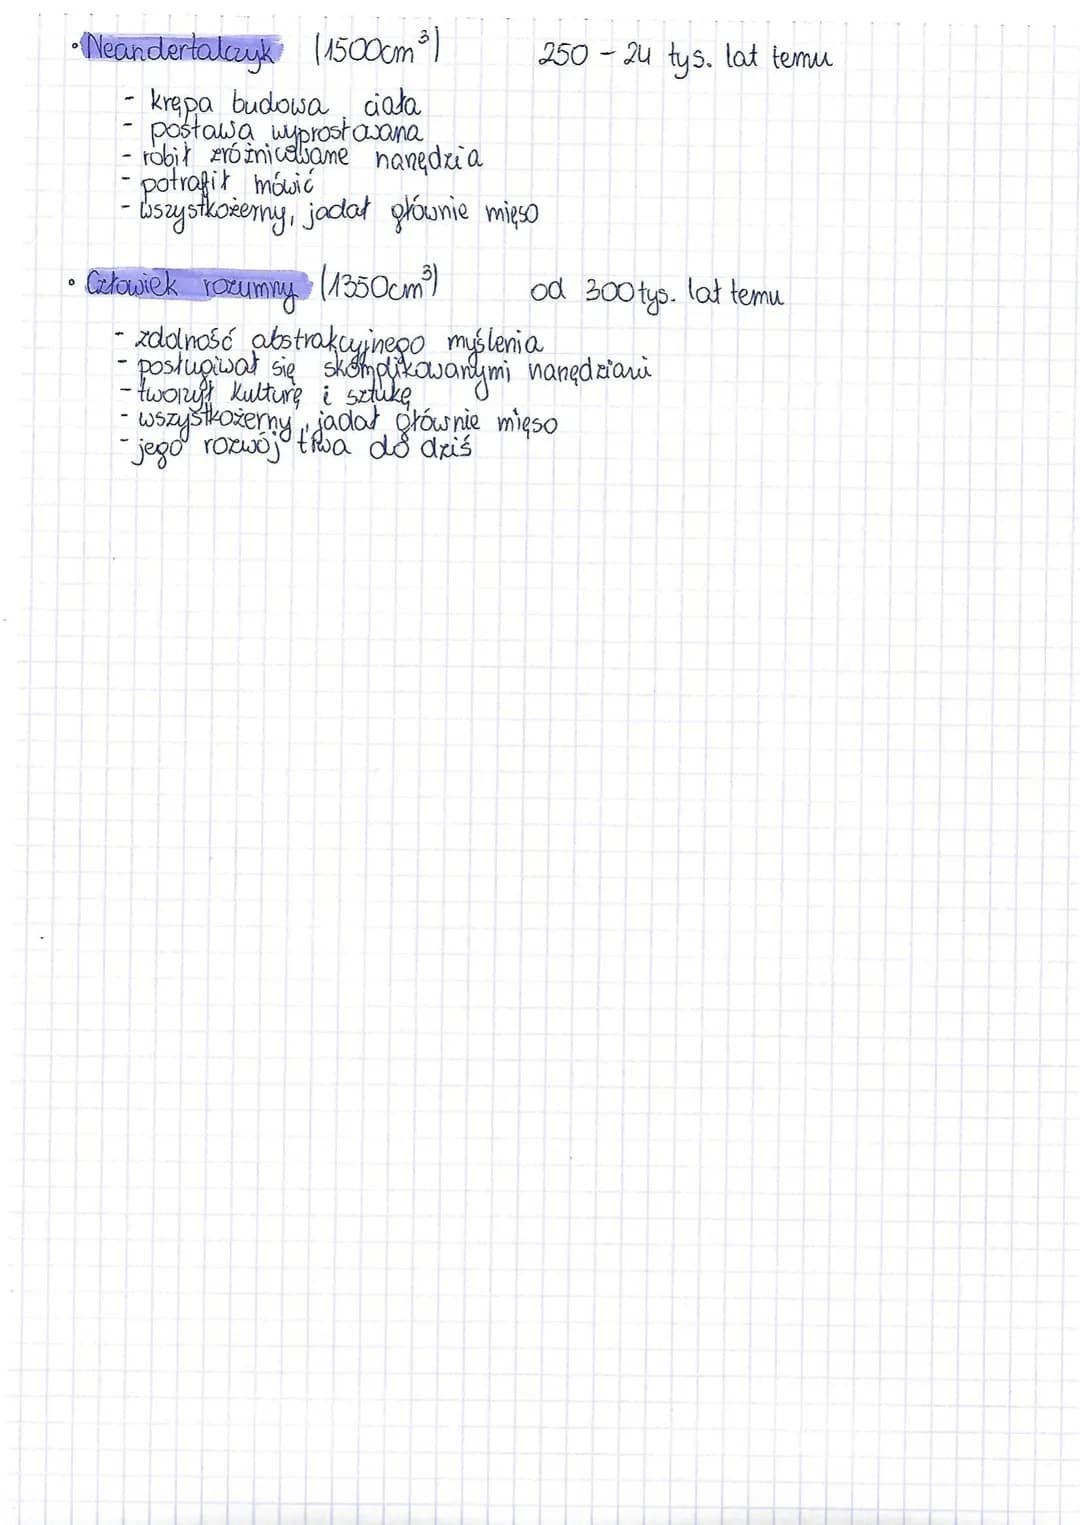 • Neandertalczyk (1500cm³) 250 – 24 tys. lat temu
- krępa budowa ciała
- postawa wyprostowana
- robił zróżnicowane narzędzia
- potrafił mówić
- wszystkożerny, jadał głównie mięso
• Człowiek rozumny (1350cm³) od 300 tys. lat temu
- zdolność abstrakcyjnego myślenia
- posługiwał się skomplikowanymi narzędziami
- tworzył kulturę i sztukę
- wszystkożerny, jadał głównie mięso
- jego rozwój trwa do dziś